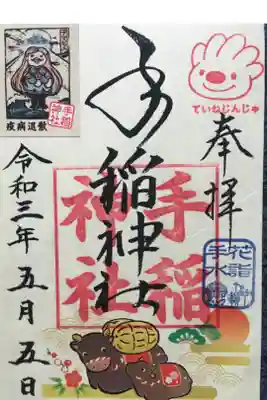 奉拝
ていねじんじゃ
花詣
手水
手稲神社
手稲
神社
手稲
神社
疫病退散
令和三年五月五日